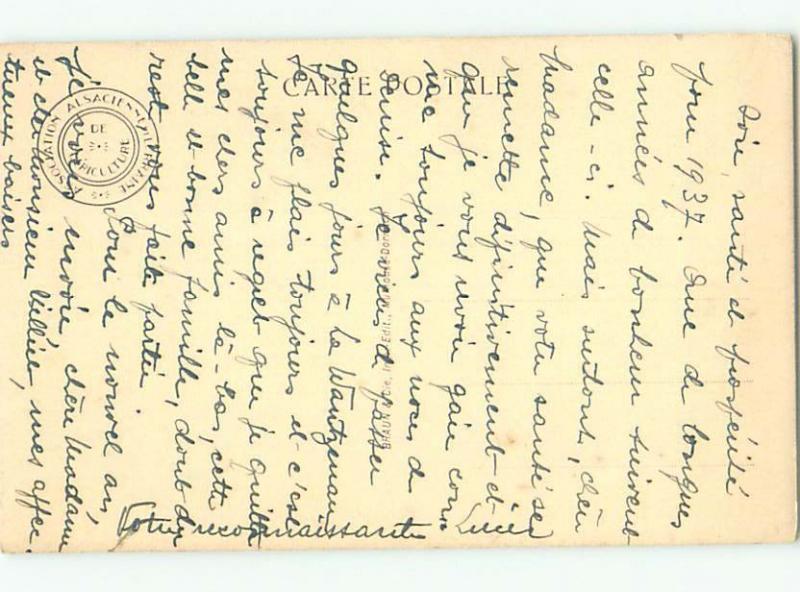 Joie, santé et prospérité
pour 1937. Que de longues
années de bonheur suivent
celle-ci. Mais surtout, chère
Madame, que votre santé se
remette définitivement et
que je vous revoie gaie com-
me toujours aux noces de
Denise. Je viens de passer
quelques jours à La Wantzenau
Je me plais toujours et c'est
toujours à regret que je quitte
mes chers amis là-bas, cette
belle et bonne famille, dont du
reste vous faites partie.
Pour le nouvel an
Je vous envoie, chère Madame
et cher Monsieur, mes affec-
tueux baisers
Votre reconnaissante Lucie
CARTE POSTALE
ASSOCIATION ALSACIENNE
DE